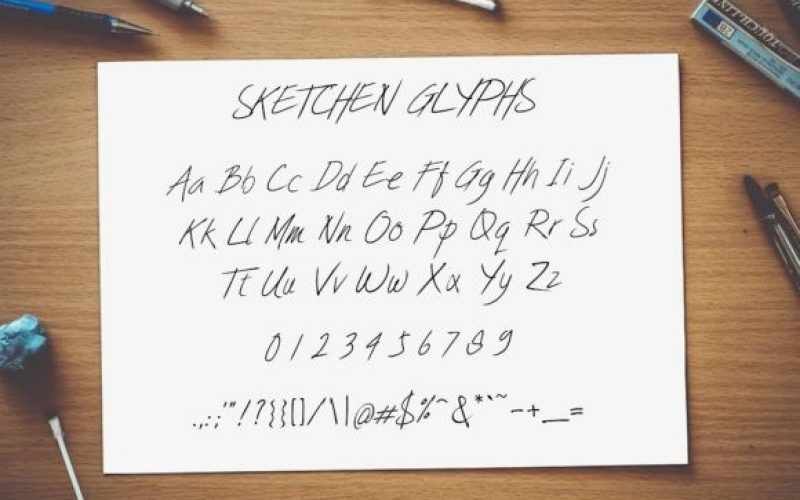 SKETCHEN GLYPHS
Aa Bb Cc Dd Ee Ff Gg Hh Ii Jj
Kk Ll Mm Nn Oo Pp Qq Rr Ss
Tt Uu Vv Ww Xx Yy Zz
0 1 2 3 4 5 6 7 8 9
.,:;'"!?{}[]/\|@#$%^&*`~-+_=